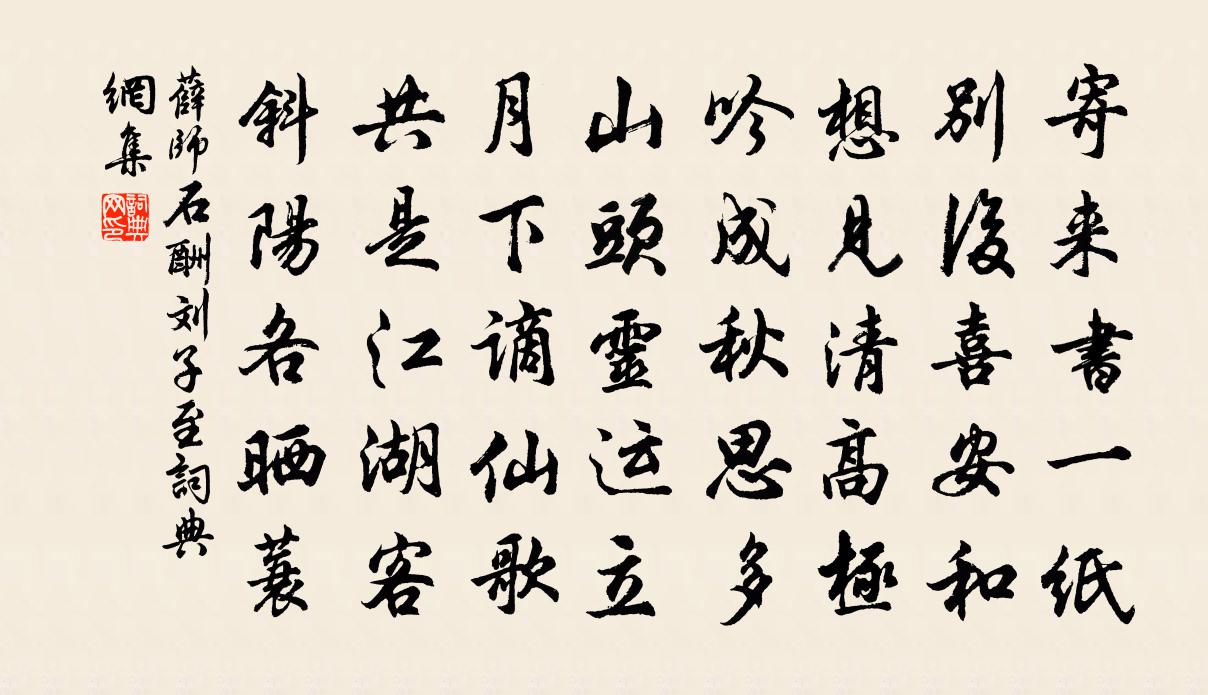 寄来書一紙
別後喜安和
想見清高極
吟成秋思多
山頭靈运立
月下谪仙歌
共是江湖客
斜陽各晒蓑
薛師石酬刘子至詞典
網集
詞典
网印